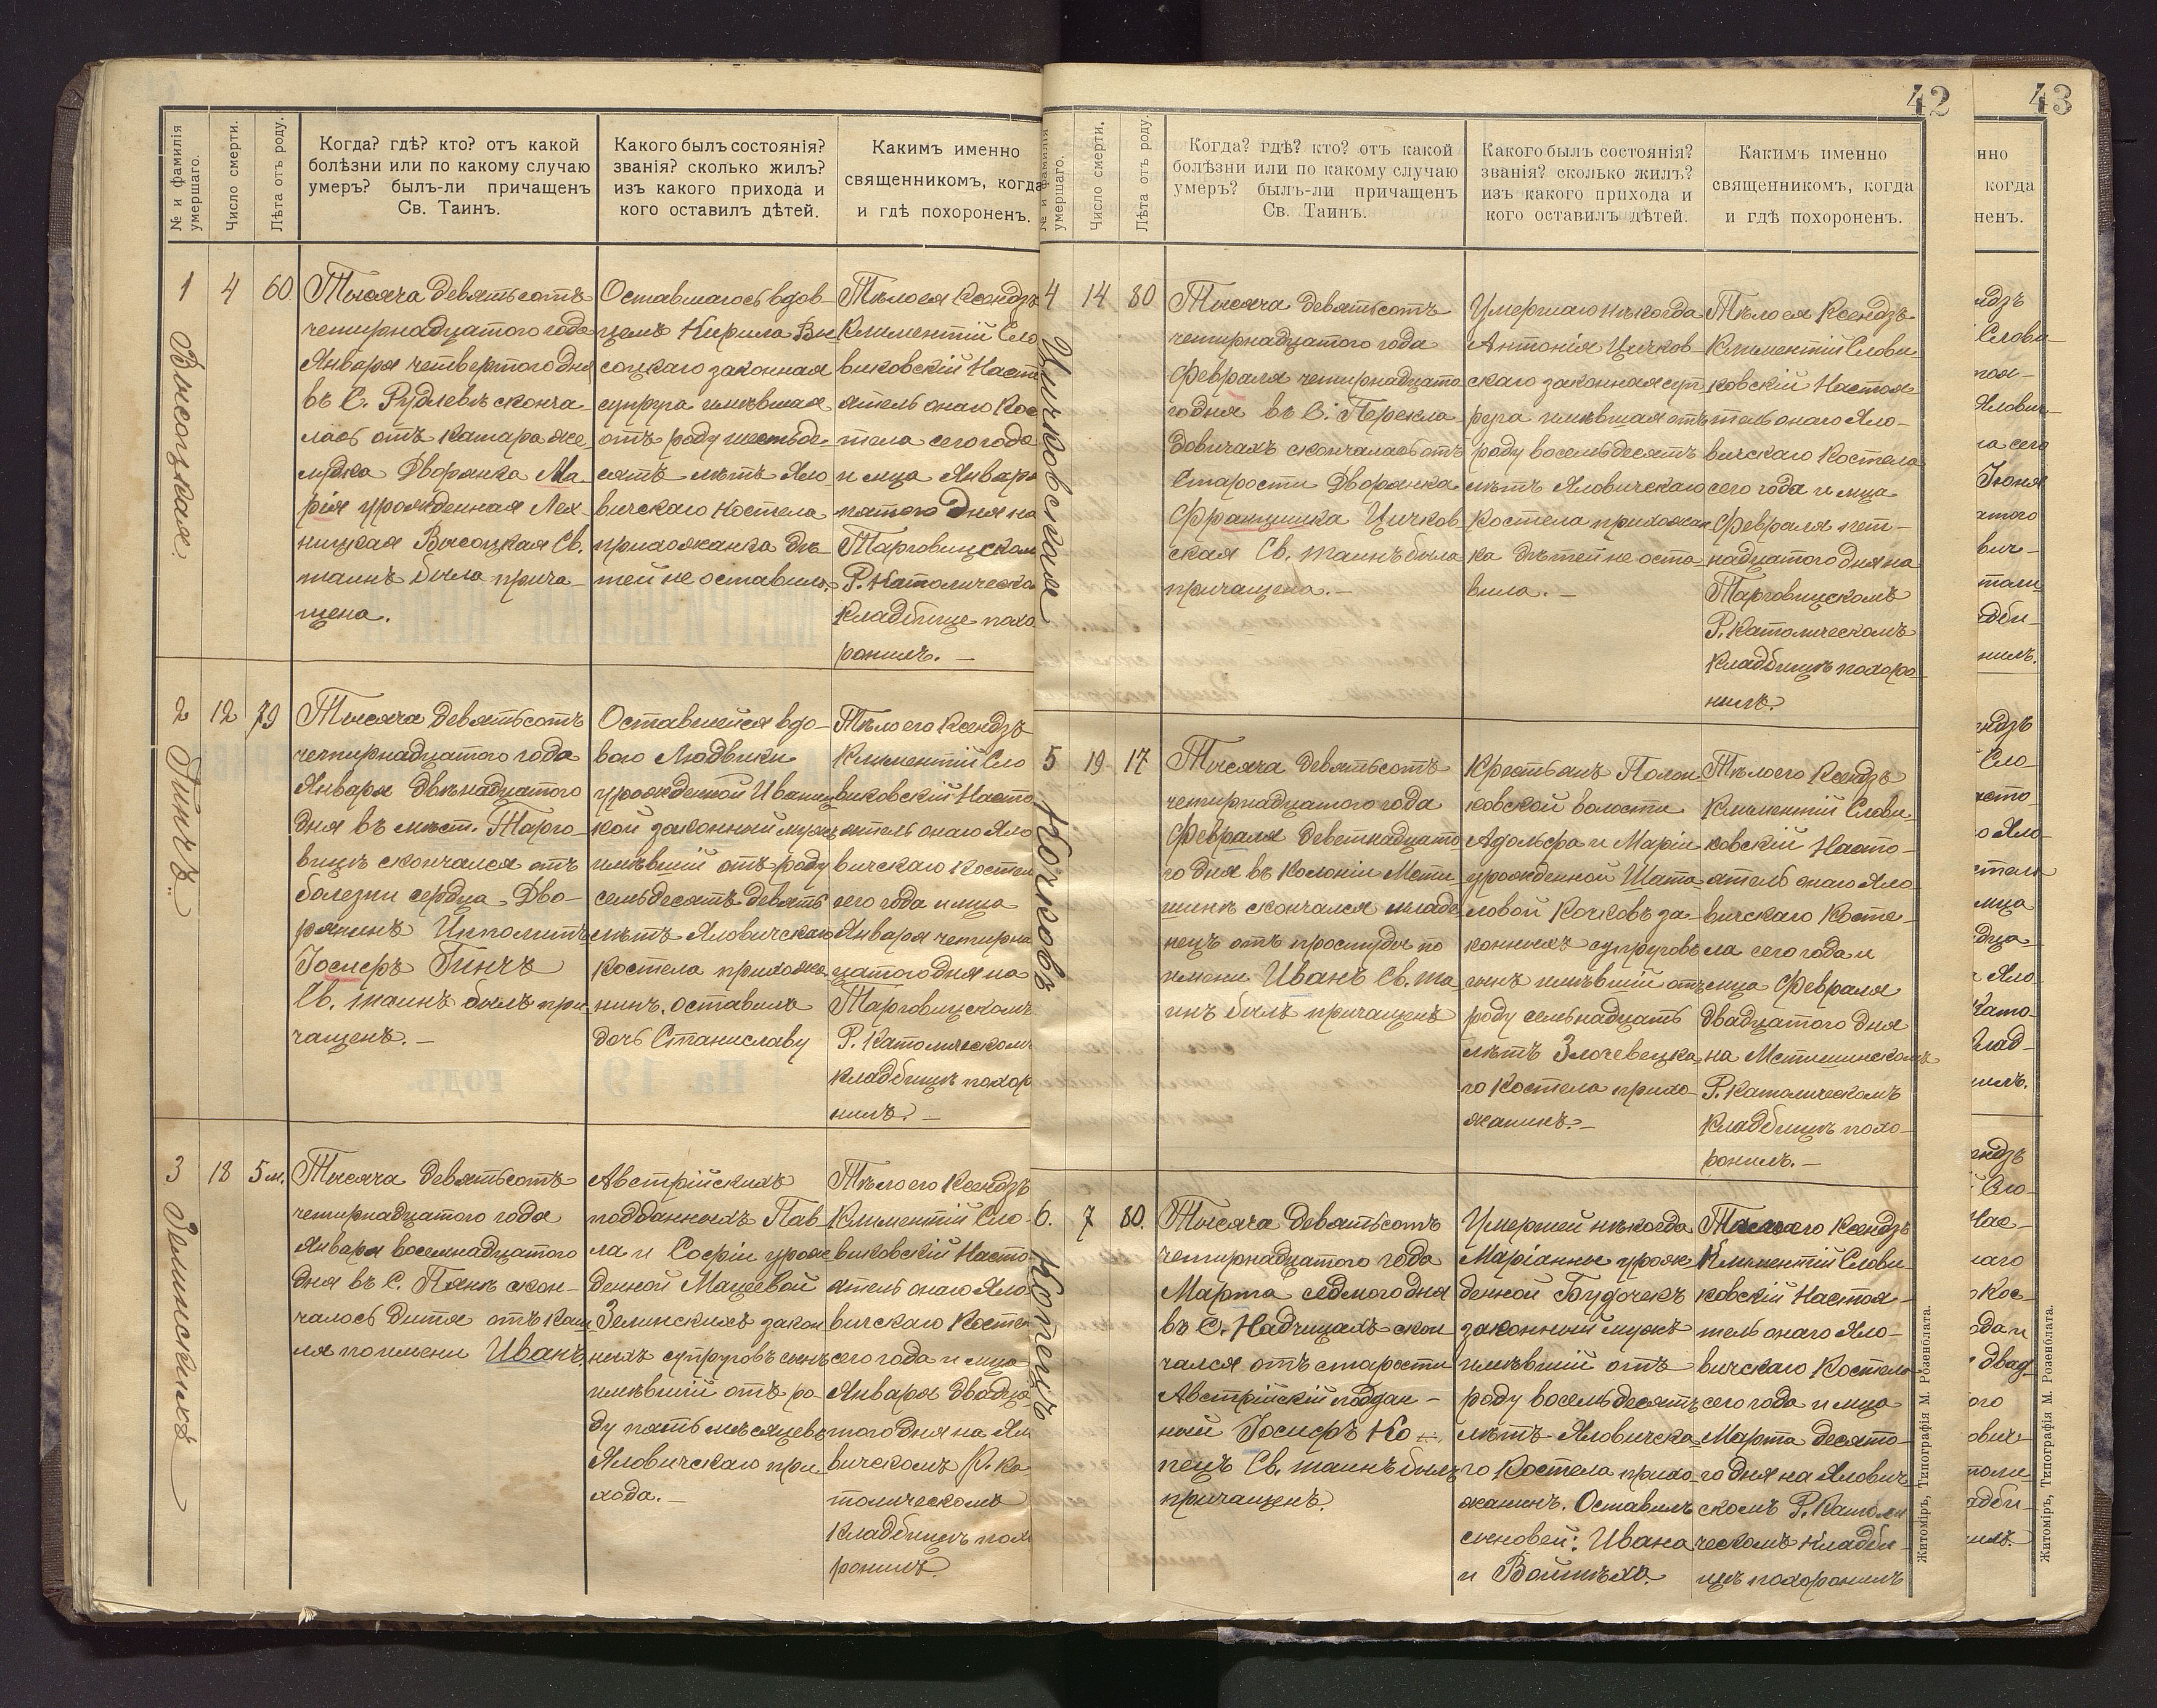 № и фамилія умершаго.
Число смерти.
Лѣта отъ роду.
Когда? гдѣ? кто? отъ какой
болѣзни или по какому случаю
умеръ? былъ-ли причащенъ
Св. Таинъ.
Какого былъ состоянія?
званія? сколько жилъ?
изъ какого прихода и
кого оставилъ дѣтей.
Какимъ именно
священникомъ, когда
и гдѣ похороненъ.
1
Высоцкая.
4
60
Тысяча девятьсотъ
четырнадцатого года
Января четвертого дня
въ С. Рудлевѣ сконча
лась отъ катара же
лудка Дворянка Ма
рія урожденная Лех
ницкая Высоцкая Св.
таинъ была прича-
щена.
Оставшагось вдов-
цемъ Кирила Вы
соцкаго законная
супруга имѣвшая
отъ роду шестьде-
сятъ лѣтъ Яло
вичскаго Костела
прихожанка дѣ-
тей не оставила.
Тѣло ея Ксендзъ
Климентій Сло
виковскій Насто
ятель онаго Кос
тела сего года
и мца Января
пятого дня на
Тарговицском
Р. Католическо
Кладбище похо
ронилъ. —
2
Гинчъ.
12
79
Тысяча девятьсотъ
четырнадцатого года
Января двѣнадцатого
дня въ мѣст. Тарго-
вицѣ скончался отъ
болезни сердца Дво-
рянинъ Ипполитъ
Іосифъ Гинчъ
Св. таинъ былъ при
чащенъ. —
Оставшейся вдо-
вою Людвики
урожденной Иваниц
кой законный мужъ
имѣвшій отъ роду
семьдесятъ девять
лѣтъ Яловичскаго
костела прихожа
нинъ. оставилъ
дочь Станиславу
Тѣло его Ксендзъ
Климентій Сло
виковскій Насто
ятель онаго Яло
вичскаго Костел
сего года и мца
Января четырна
цатого дня на
Тарговицскомъ
Р. Католическомъ
кладбищѣ похор
нилъ. —
3
Зелинскихъ
18
5 м.
Тысяча девятьсотъ
четырнадцатого года
Января восемнадцатого
дня въ С. Пянѣ скон-
чалось дитя отъ каш
ля по имени Иванъ
Австрійскихъ
подданныхъ Пав
ла и Софіи урож
денной Мацеевой
Зелинскихъ закон
ныхъ супруговъ сынъ
имѣвшій отъ ро-
ду пять мѣсяцевъ
Яловичскаго при
хода. —
Тѣло его Ксендзъ
Климентій Сло-
виковскій Насто
ятель онаго Яло
вичскаго Костел
сего года и мца
Января двадца-
того дня на Ял
вичскомъ Р. Ка
толическомъ
Кладбищѣ похо
ронилъ
42
№ и фамилія умершаго.
Число смерти.
Лѣта отъ роду.
Когда? гдѣ? кто? отъ какой
болѣзни или по какому случаю
умеръ? былъ-ли причащенъ
Св. Таинъ.
Какого былъ состоянія?
званія? сколько жилъ?
изъ какого прихода и
кого оставилъ дѣтей.
Какимъ именно
священникомъ, когда
и гдѣ похороненъ.
4
Цичковская
14
80
Тысяча девятьсотъ
четырнадцатого года
Февраля четырнадцато
го дня въ С. Перекла
довичахъ скончалась отъ
Старости Дворянка
Францишка Цичков
ская Св. таинъ была
причащена. —
Умершаго нѣкогда
Антонія Цичков-
скаго законная суп
руга имѣвшая отъ
роду восемьдесятъ
лѣтъ Яловичскаго
Костела прихожан
ка дѣтей не оста
вила. —
Тѣло ея Ксендзъ
Климентій Слови
ковскій Настоя
тель онаго Яло-
вичскаго Костела
сего года и мца
Февраля пят-
надцатого дня на
Тарговицскомъ
Р. Католическомъ
Кладбищѣ похоро
нилъ.
5
Кочковъ
19
17
Тысяча девятьсотъ
четырнадцатого года
Февраля девятнадцато
го дня въ Колоніи Мсти
шинъ скончался младе
нецъ отъ простуды по
имени Иванъ Св. та
инъ былъ причащенъ
Крестьянъ Полон
ковской волости
Адольфа и Маріи
урожденной Шата
ловой Кочковъ за-
конныхъ супруговъ
сынъ имѣвшій отъ
роду семьнадцать
лѣтъ Злочевецка
го Костела прихо-
жанинъ. —
Тѣло его Ксендзъ
Климентій Слови-
ковскій Насто-
ятель онаго Яло-
вичскаго Косте-
ла сего года и
мца Февраля
двадцатого дня
на Мстишинскомъ
Р. Католическомъ
Кладбищѣ похо-
ронилъ. —
6.
Копецъ
7
80.
Тысяча девятьсотъ
четырнадцатого года
Марта седмого дня
въ С. Надчицахъ скон
чался отъ старости
Австрійскій поддан-
ный Іосифъ Ко-
пецъ Св. таинъ былъ
причащенъ.
Умершей нѣкогда
Маріанны урож
денной Будочекъ
законный мужъ
имѣвшій отъ
роду восемьдесятъ
лѣтъ Яловичска
го Костела прихо-
жанинъ. Оставилъ
сыновей: Ивана
и Войтѣха.
Тѣло его Ксендзъ
Климентій Слови-
ковскій Настоя-
тель онаго Яло-
вичскаго Костела
сего года и мца
Марта десято-
го дня на Ялович
скомъ Р. Католи
ческомъ Кладби-
щѣ похоронилъ
Житоміръ, Типографія М. Розенблата.
43
нно
когда
ненъ.
ндзъ
Слови-
тоя-
Ялович-
ла сего
Іюня
атого
вич-
толи
адби-
нилъ.
ндзъ
Сло-
асто-
о Яло-
стела
мца
дца-
Яло
Като-
Клад-
нилъ.
ендзъ
Сло-
Нас-
наго
Кос-
ода и
двад-
ого
ович-
толи
адби-
илъ.
Житоміръ, Типографія М. Розенблата.